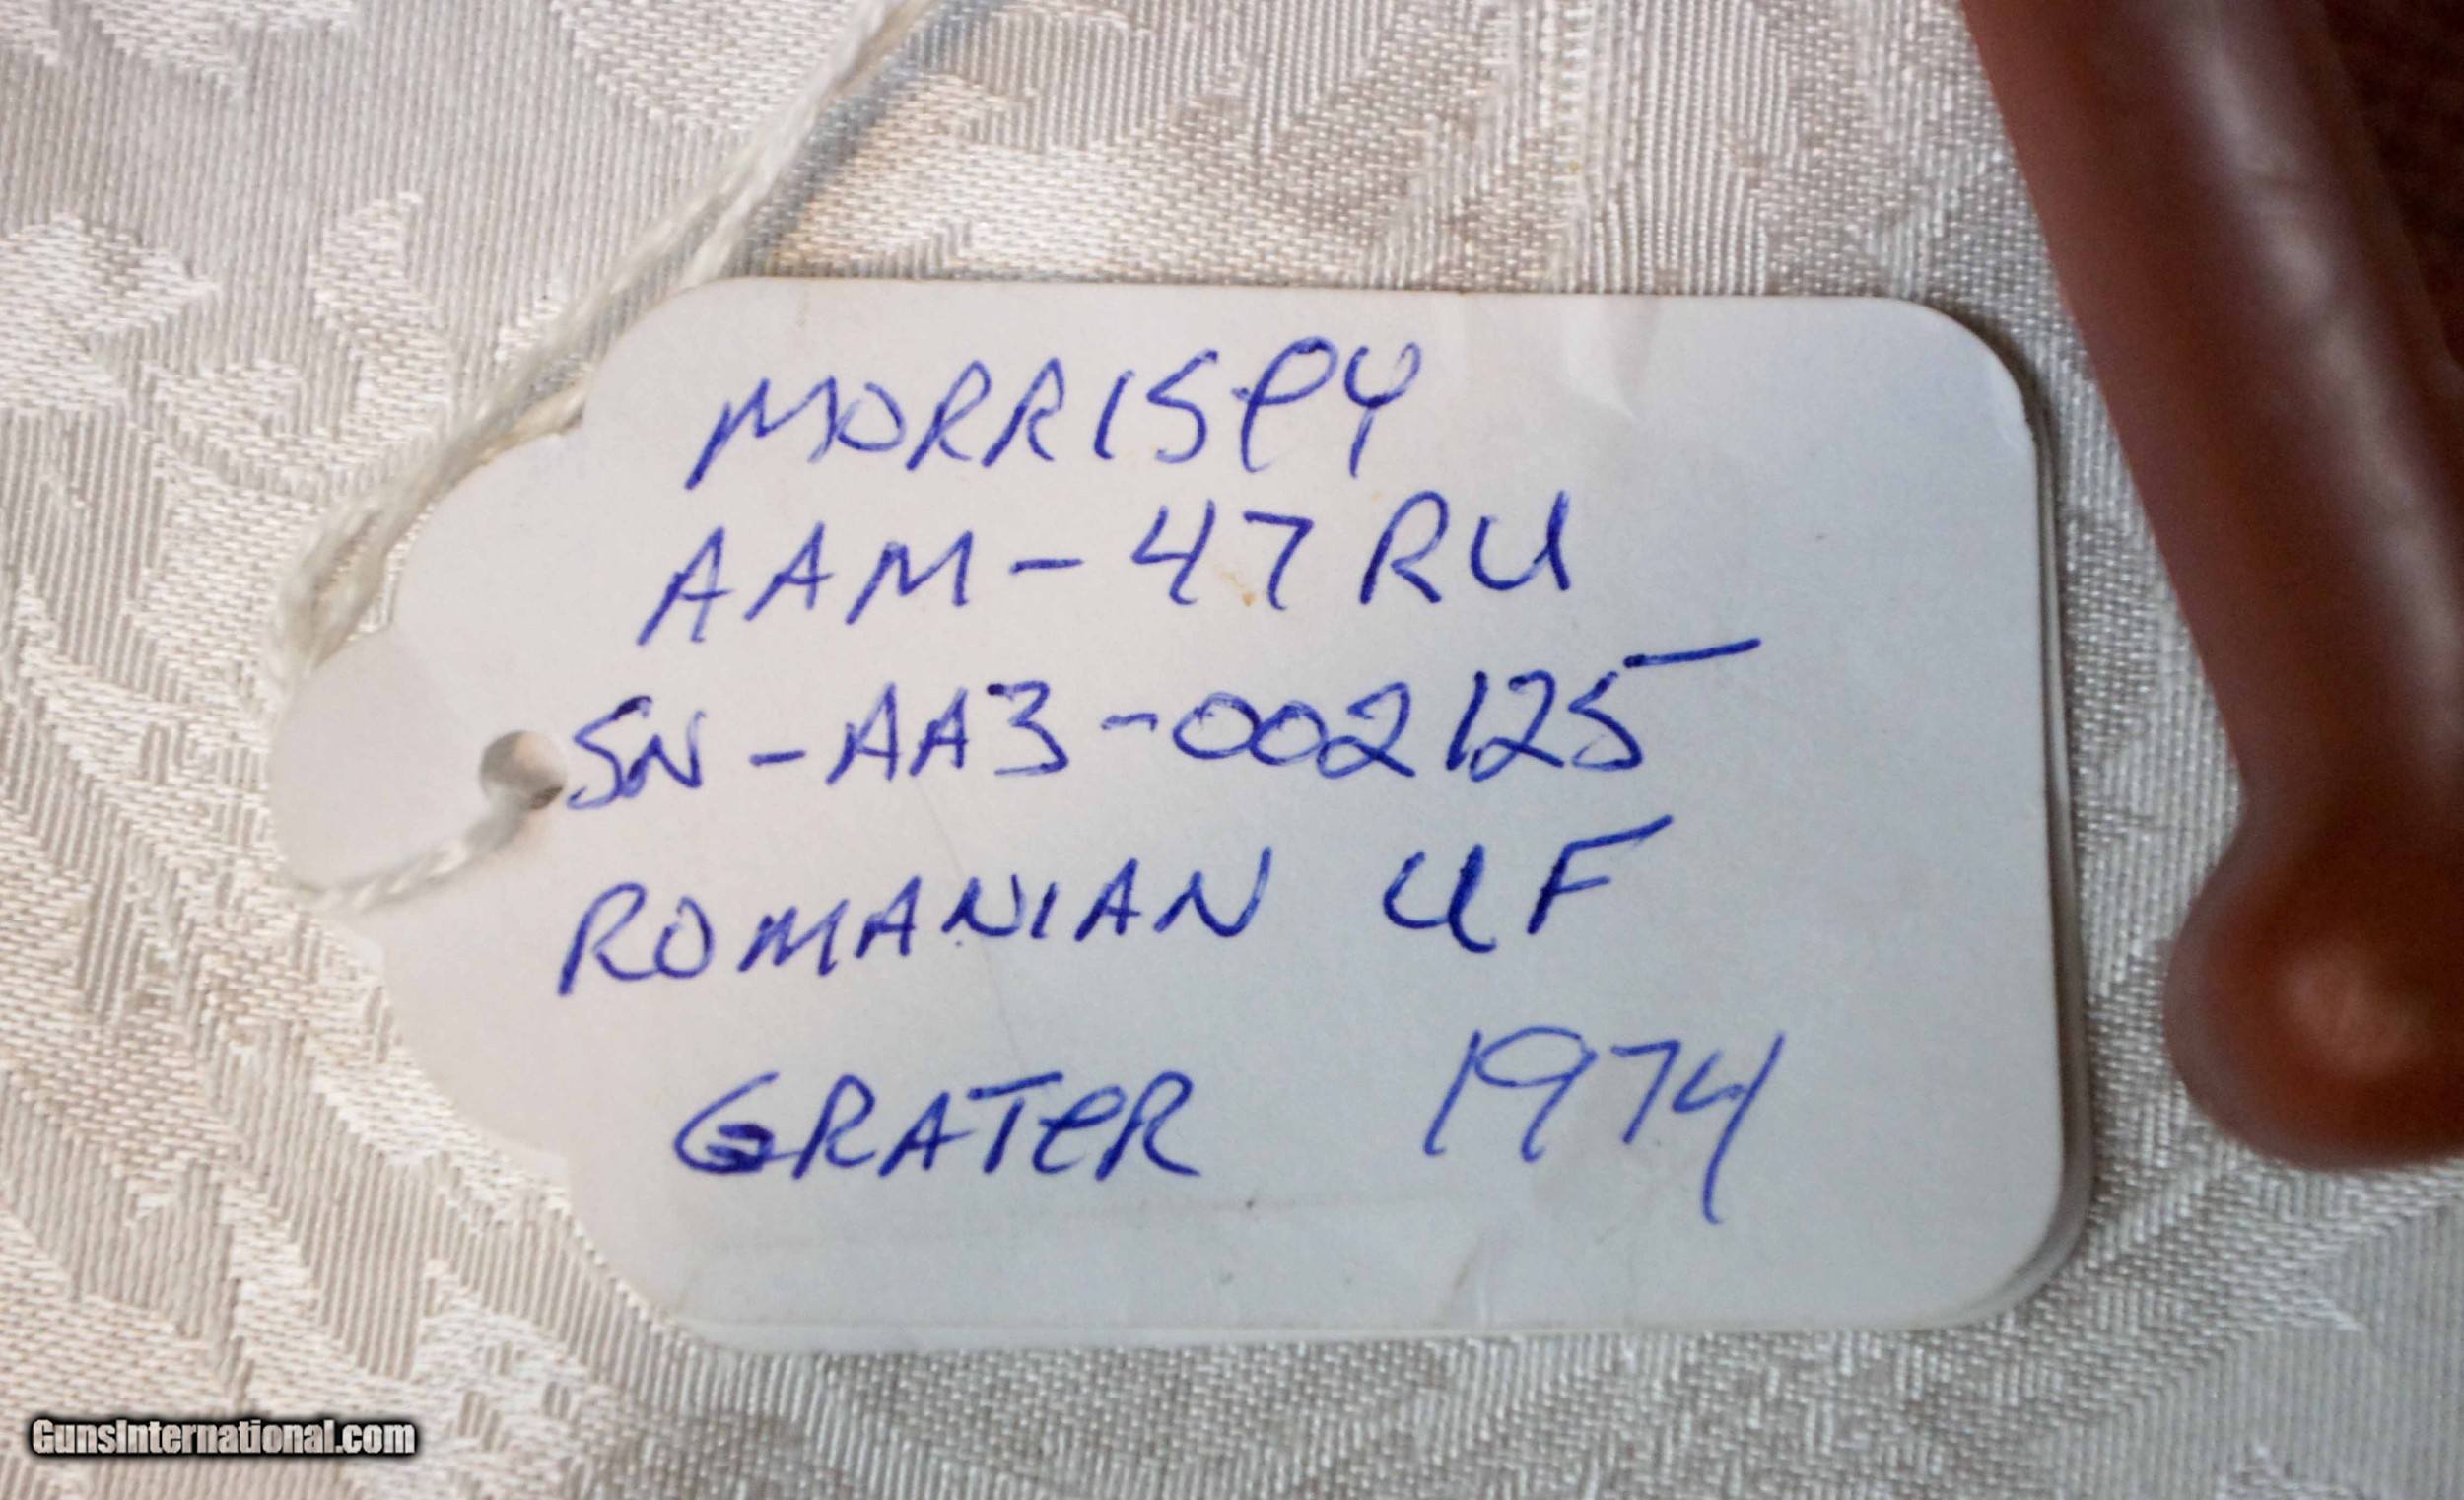 MORRISPY
AAM-47 RU
SN-AA3-002125
ROMANIAN UF
GRATER 1974
GunsInternational.com